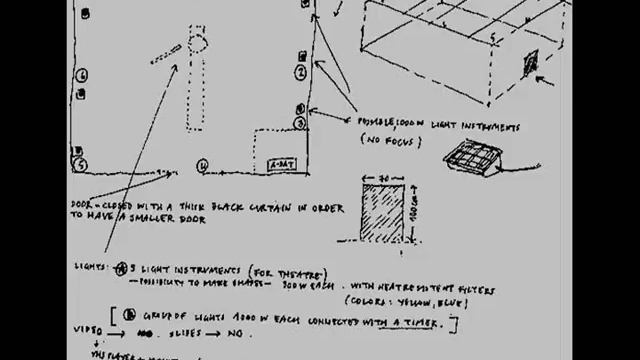 6
2
3
5
4
A-DAT
POSSIBLE, 1000W LIGHT INSTRUMENTS
(NO FOCUS)
70
100cm
DOOR - CLOSED WITH A THICK BLACK CURTAIN IN ORDER
TO HAVE A SMALLER DOOR
LIGHTS: A 5 LIGHT INSTRUMENTS (FOR THEATRE)
- POSSIBILITY TO MAKE SHAPES - 300W EACH. WITH HEATRESISTENT FILTERS
(COLORS: YELLOW, BLUE)
[ B GROUP OF LIGHTS 1000W EACH CONNECTED WITH A TIMER. ]
VIDEO → NO. SLIDES → NO.
VHS PLAYER